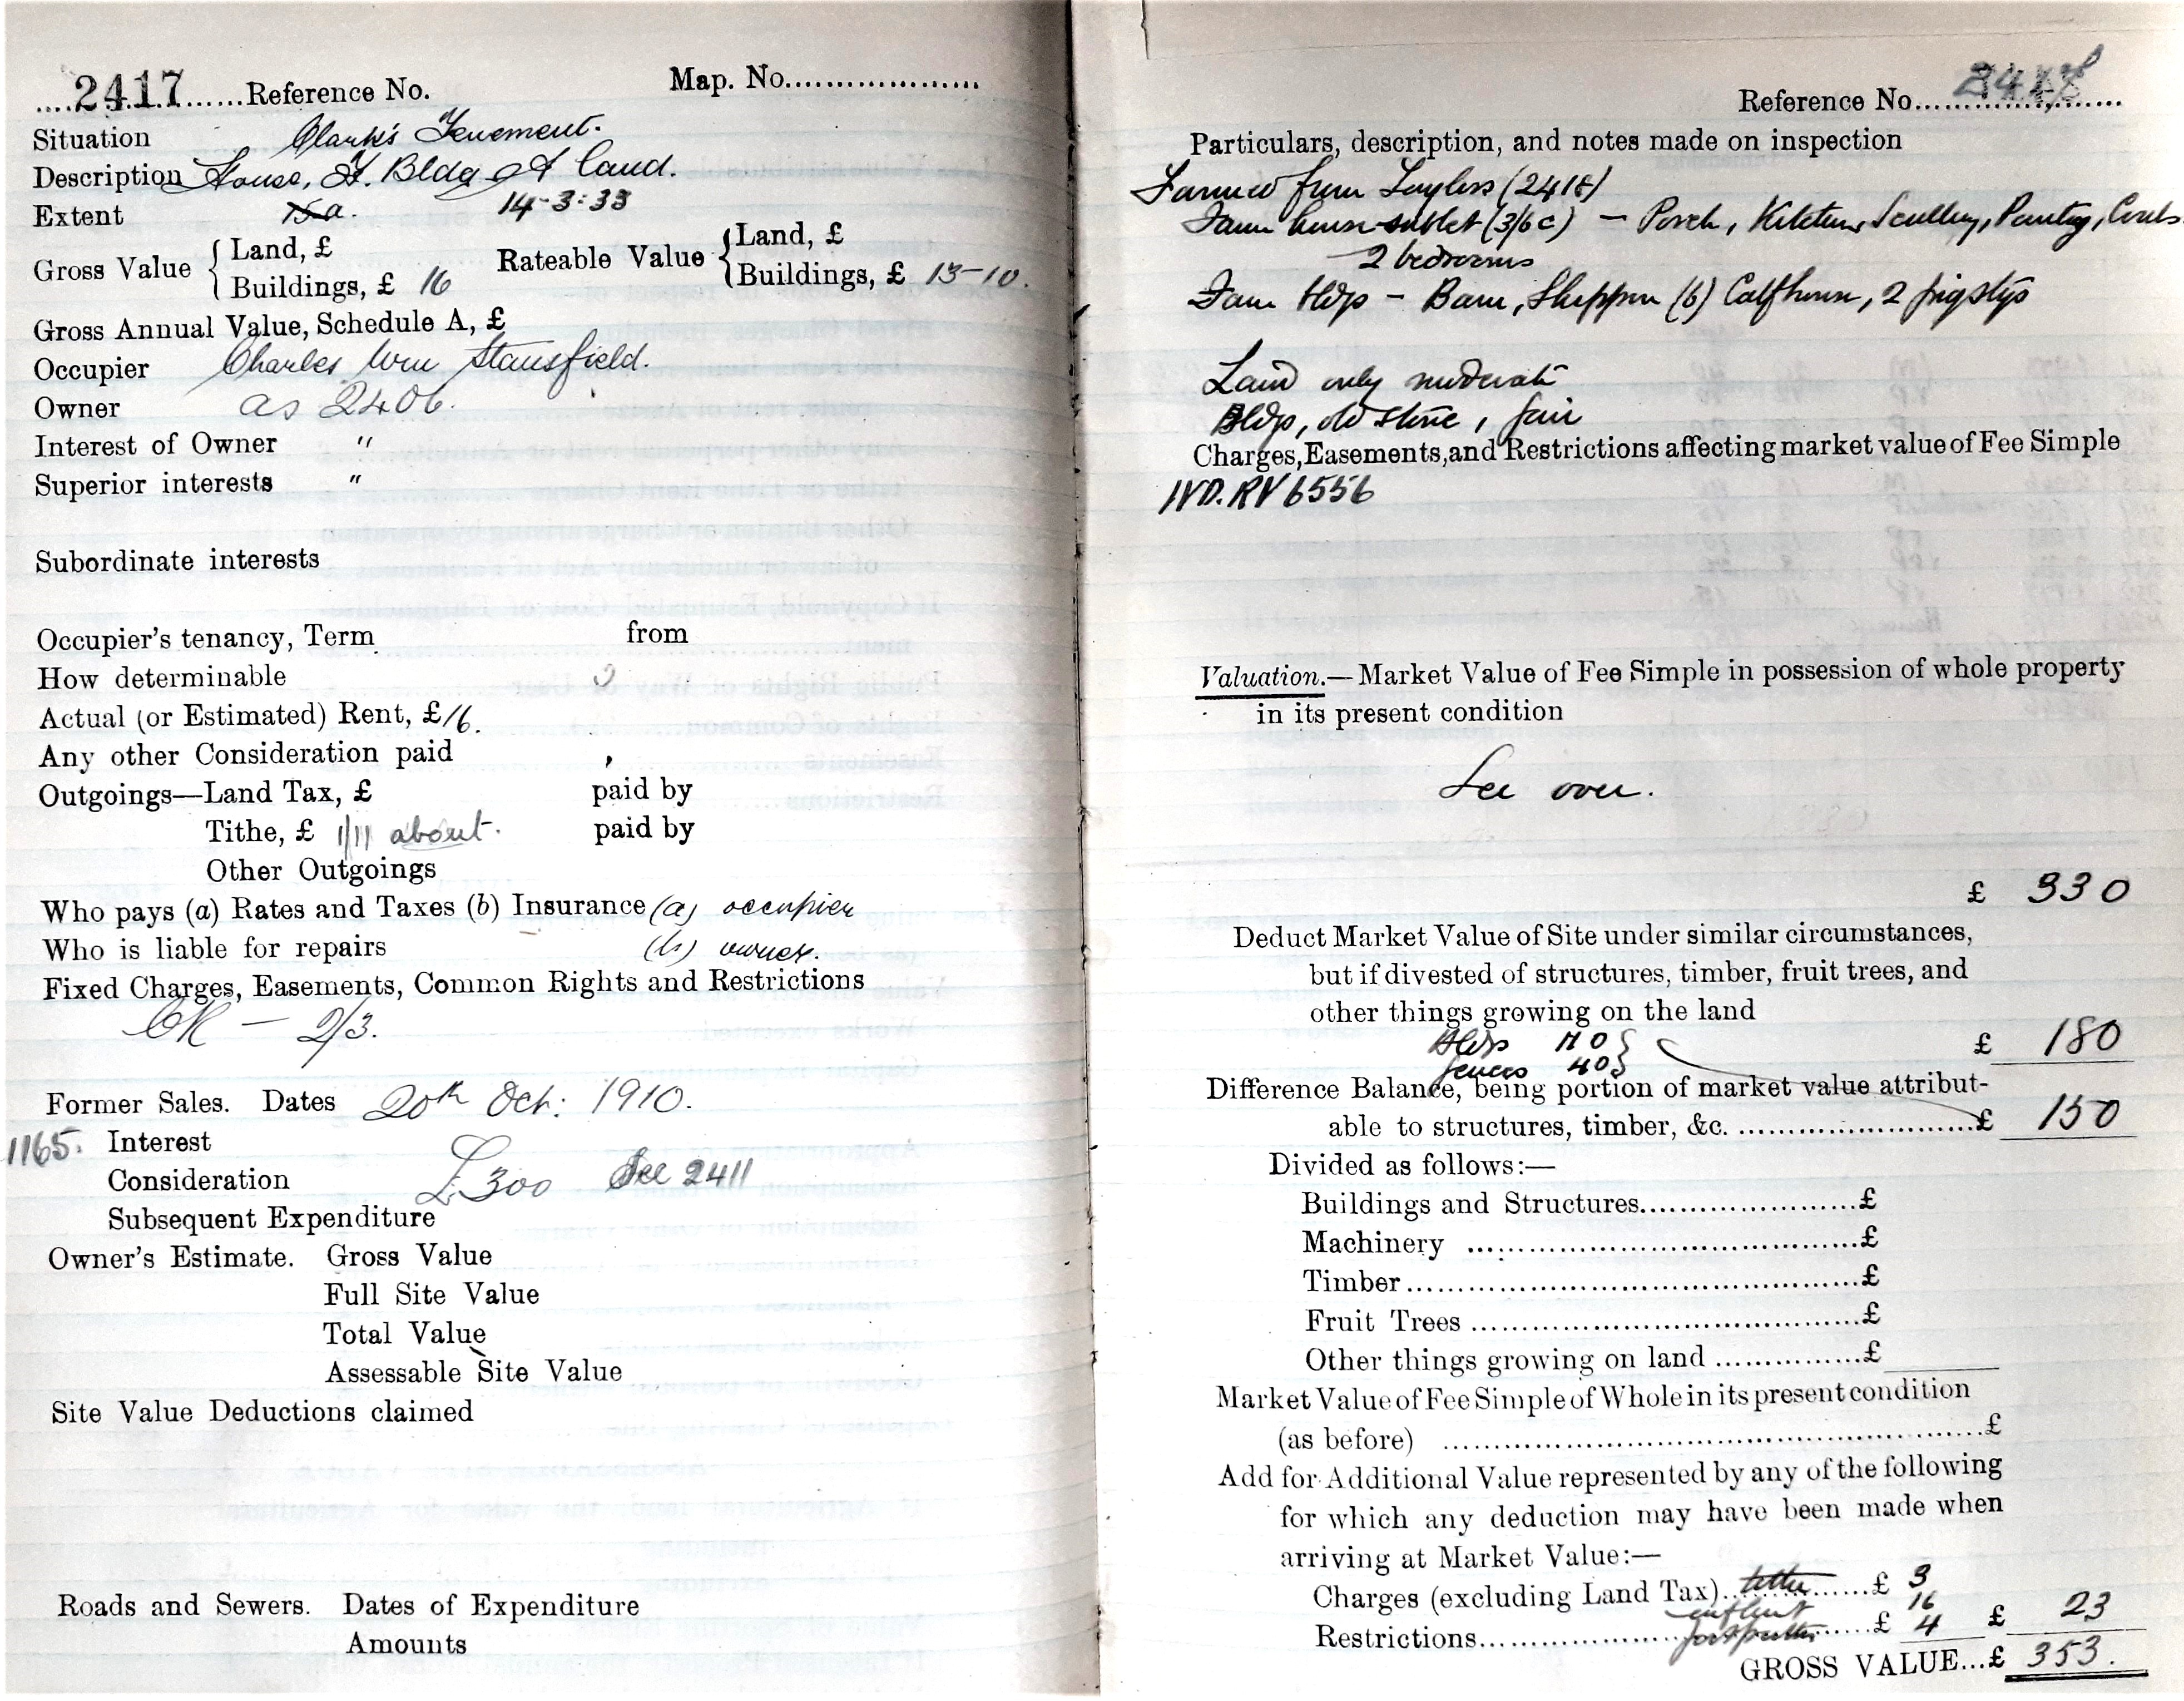 ....2417......Reference No.
Map. No...................
Situation Clark's Tenement.
Description House, F. Bldgs & land.
Extent 15a. 14-3:33
Gross Value { Land, £
Buildings, £ 16
Rateable Value { Land, £
Buildings, £ 13-10.
Gross Annual Value, Schedule A, £
Occupier Charles Wm Stansfield.
Owner as 2406.
Interest of Owner "
Superior interests "
Subordinate interests
Occupier's tenancy, Term from
How determinable
Actual (or Estimated) Rent, £16.
Any other Consideration paid
Outgoings—Land Tax, £ paid by
Tithe, £ 1/11 about. paid by
Other Outgoings
Who pays (a) Rates and Taxes (b) Insurance (a) occupier
Who is liable for repairs (b) owner.
Fixed Charges, Easements, Common Rights and Restrictions
CR — 2/3.
Former Sales. Dates 20th Oct: 1910.
1165. Interest
Consideration £300 See 2411
Subsequent Expenditure
Owner's Estimate. Gross Value
Full Site Value
Total Value
Assessable Site Value
Site Value Deductions claimed
Roads and Sewers. Dates of Expenditure
Amounts
Reference No.
Particulars, description, and notes made on inspection
Farmed from Taylors (2418)
Farm house sublet (3/6 c) — Porch, Kitchen, Scullery, Pantry, Coals
2 bedrooms
Farm Bldgs - Barn, Shippon (6) Calfhouse, 2 pigstys
Land only moderate
Bldgs, old stone, fair
Charges, Easements, and Restrictions affecting market value of Fee Simple
IVD. RV 6556
Valuation.—Market Value of Fee Simple in possession of whole property
in its present condition
See over.
£ 330
Deduct Market Value of Site under similar circumstances,
but if divested of structures, timber, fruit trees, and
other things growing on the land
Bldgs 110 } £ 180
fences 40 }
Difference Balance, being portion of market value attribut-
able to structures, timber, &c. ........................£ 150
Divided as follows:—
Buildings and Structures......................£
Machinery .......................................£
Timber.............................................£
Fruit Trees .......................................£
Other things growing on land ...............£
Market Value of Fee Simple of Whole in its present condition
(as before) ..........................................................£
Add for Additional Value represented by any of the following
for which any deduction may have been made when
arriving at Market Value:—
Charges (excluding Land Tax) tithe £ 3
16
Restrictions footpaths £ 4 £ 23
GROSS VALUE...£ 353.